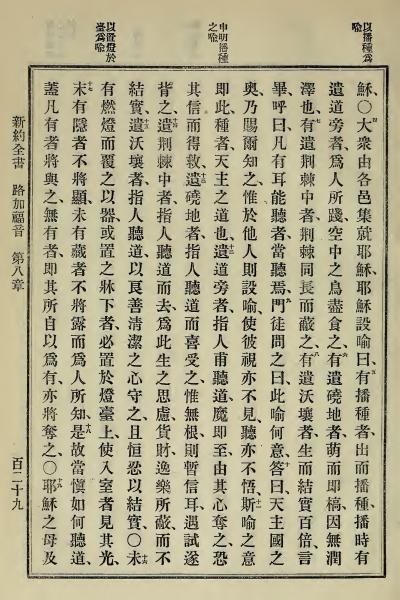 以播種為喻
申明播種之喻
以置燈於臺為喻
穌、○四大衆由各邑集就耶穌、耶穌設喻曰、五有播種者出而播種、播時有
遺道旁者、為人所踐、空中之鳥盡食之、六有遺磽地者、萌而即槁、因無潤
澤也、七有遺荆棘中者、荆棘同長而蔽之、八有遺沃壤者、生而結實百倍、言
畢、呼曰、凡有耳能聽者、當聽焉、九門徒問之曰、此喻何意、十答曰、天主國之
奧、乃賜爾知之、惟於他人則設喻、使彼視亦不見、聽亦不悟、十一斯喻之意
即此、種者、天主之道也、十二遺道旁者、指人甫聽道、魔即至、由其心奪之、恐
其信而得救、十三遺磽地者、指人聽道而喜受之、惟無根、則暫信耳、遇試遂
背之、十四遺荆棘中者、指人聽道而去、為此生之思慮貨財逸樂所蔽、而不
結實、十五遺沃壤者、指人聽道、以良善清潔之心守之、且恒忍以結實、○十六未
有燃燈而覆之以器、或置之牀下者、必置於燈臺上、使入室者見其光、
十七未有隱者不將顯、未有藏者不將露而為人所知、十八是故當慎如何聽道、
蓋凡有者、將與之、無有者、即其所自以為有、亦將奪之、○十九耶穌之母及
新約全書 路加福音 第八章 百二十九